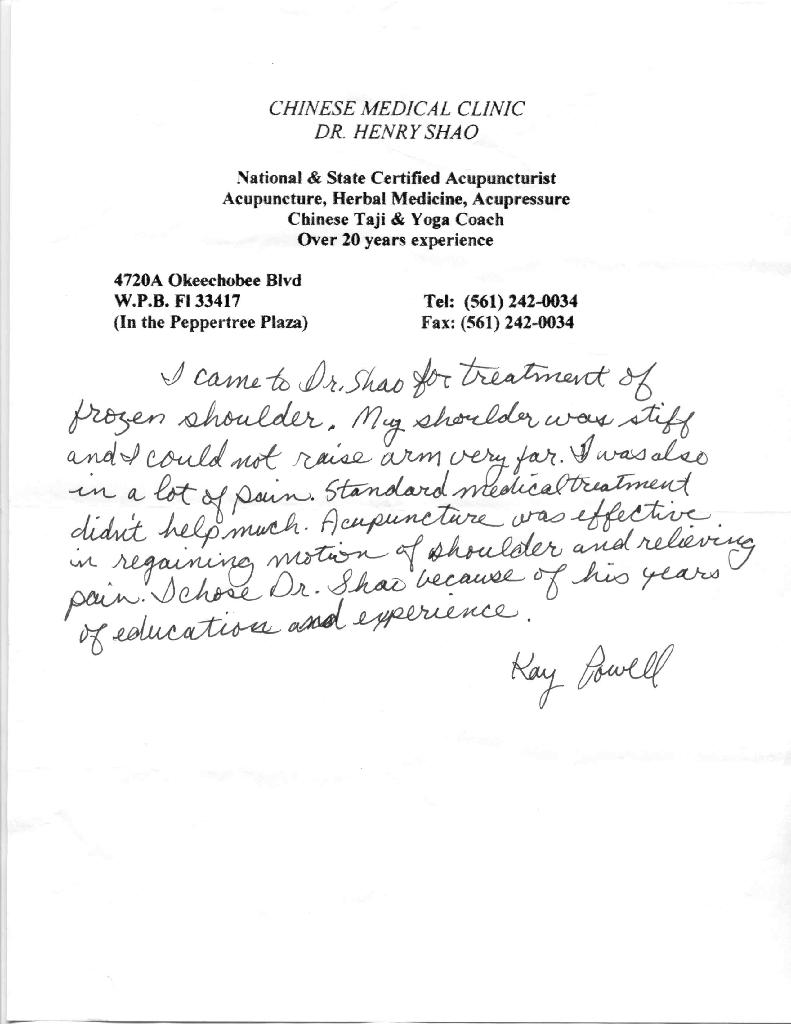 CHINESE MEDICAL CLINIC
DR. HENRY SHAO
National & State Certified Acupuncturist
Acupuncture, Herbal Medicine, Acupressure
Chinese Taji & Yoga Coach
Over 20 years experience
4720A Okeechobee Blvd
W.P.B. Fl 33417 Tel: (561) 242-0034
(In the Peppertree Plaza) Fax: (561) 242-0034
I came to Dr. Shao for treatment of
frozen shoulder. My shoulder was stiff
and I could not raise arm very far. I was also
in a lot of pain. Standard medical treatment
didn't help much. Acupuncture was effective
in regaining motion of shoulder and relieving
pain. I chose Dr. Shao because of his years
of education and experience.
Kay Powell